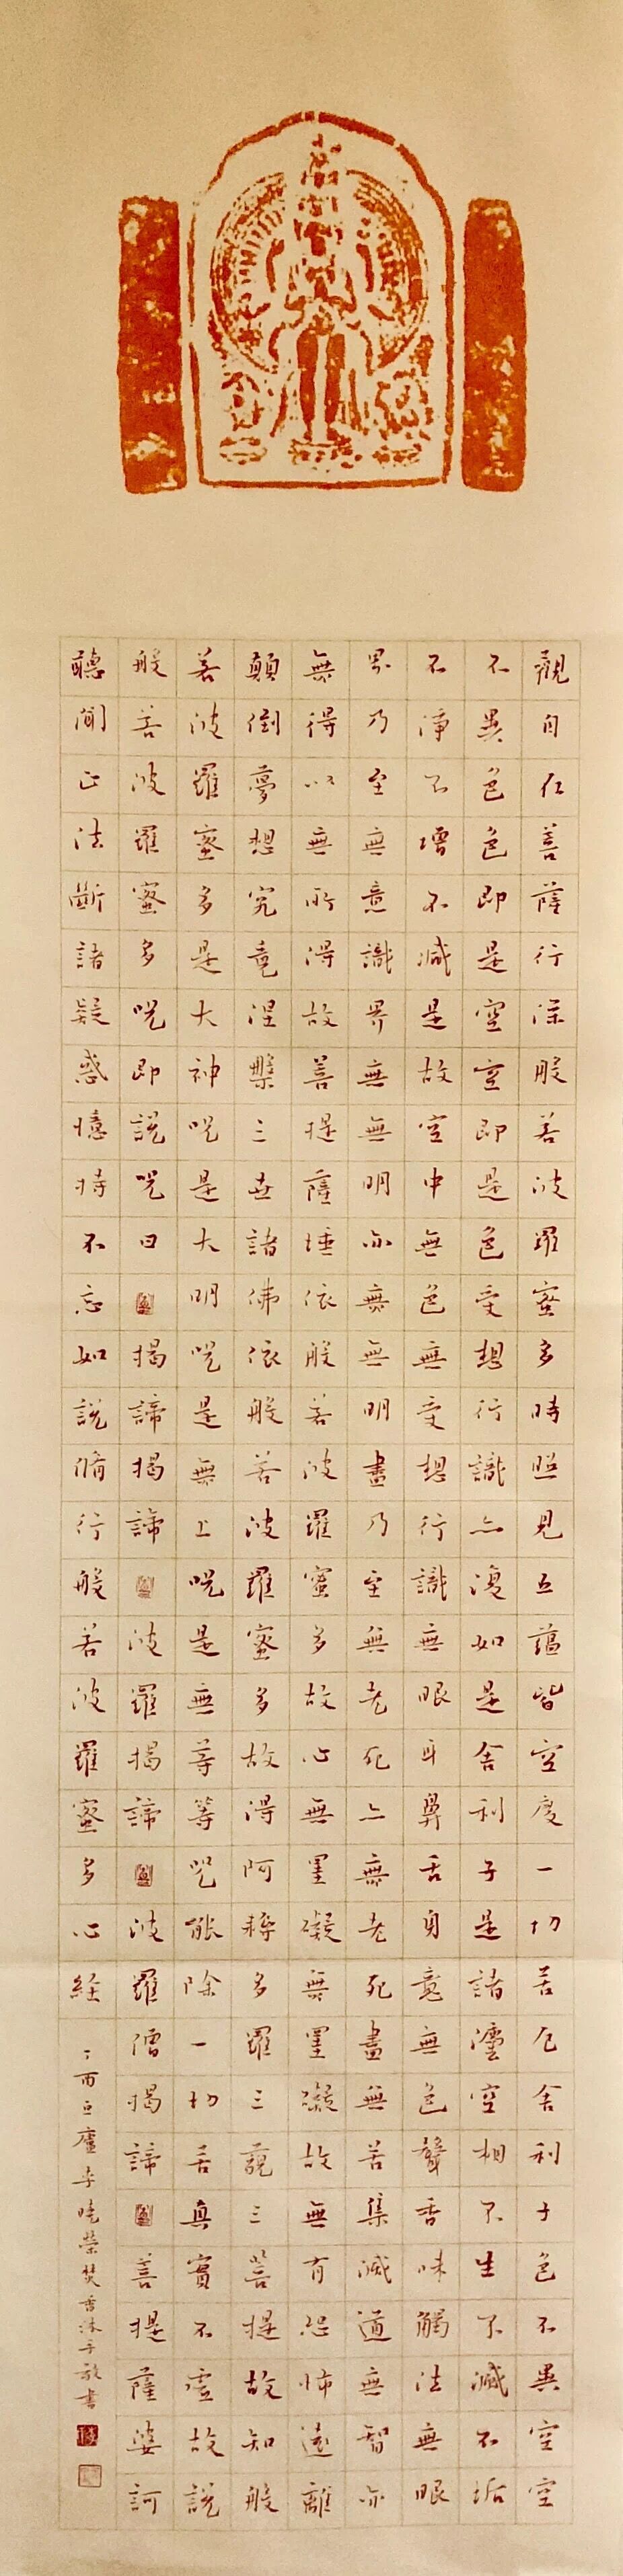 觀自在菩薩行深般若波羅蜜多時照見五蘊皆空度一切苦厄舍利子色不異空空
不異色色即是空空即是色受想行識亦復如是舍利子是諸灋空相不生不滅不垢
不淨不增不減是故空中無色無受想行識無眼耳鼻舌身意無色聲香味觸法無眼
界乃至無意識界無無明亦無無明盡乃至無老死亦無老死盡無苦集滅道無智亦
無得以無所得故菩提薩埵依般若波羅蜜多故心無罣礙無罣礙故無有恐怖遠離
顛倒夢想究竟涅槃三世諸佛依般若波羅蜜多故得阿耨多羅三藐三菩提故知般
若波羅蜜多是大神呪是大明呪是無上呪是無等等呪能除一切苦真實不虛故說
般若波羅蜜多呪即說呪曰揭諦揭諦波羅揭諦波羅僧揭諦菩提薩婆訶
聽聞正法斷諸疑惑憶持不忘如說脩行般若波羅蜜多心經
丁酉豆廬李曉榮焚香沐手敬書